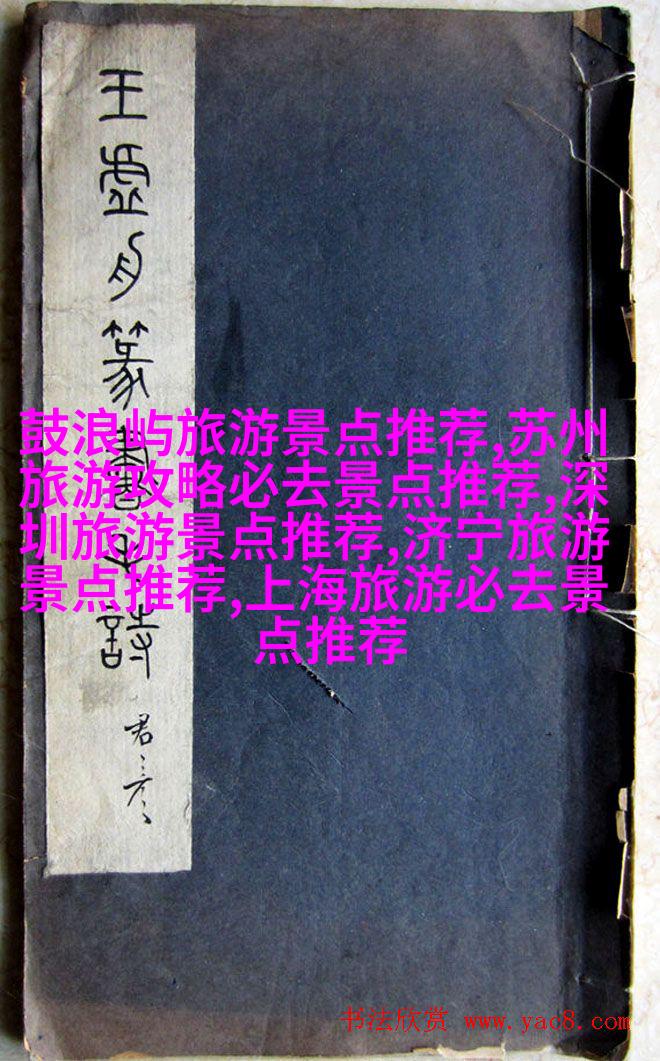 王虚舟篆書𠦑詩
君彦
鼓浪屿旅游景点推荐,苏州
旅游攻略必去景点推荐,深
圳旅游景点推荐,济宁旅游
景点推荐,上海旅游必去景
点推荐
书法欣赏 www.yac8.com